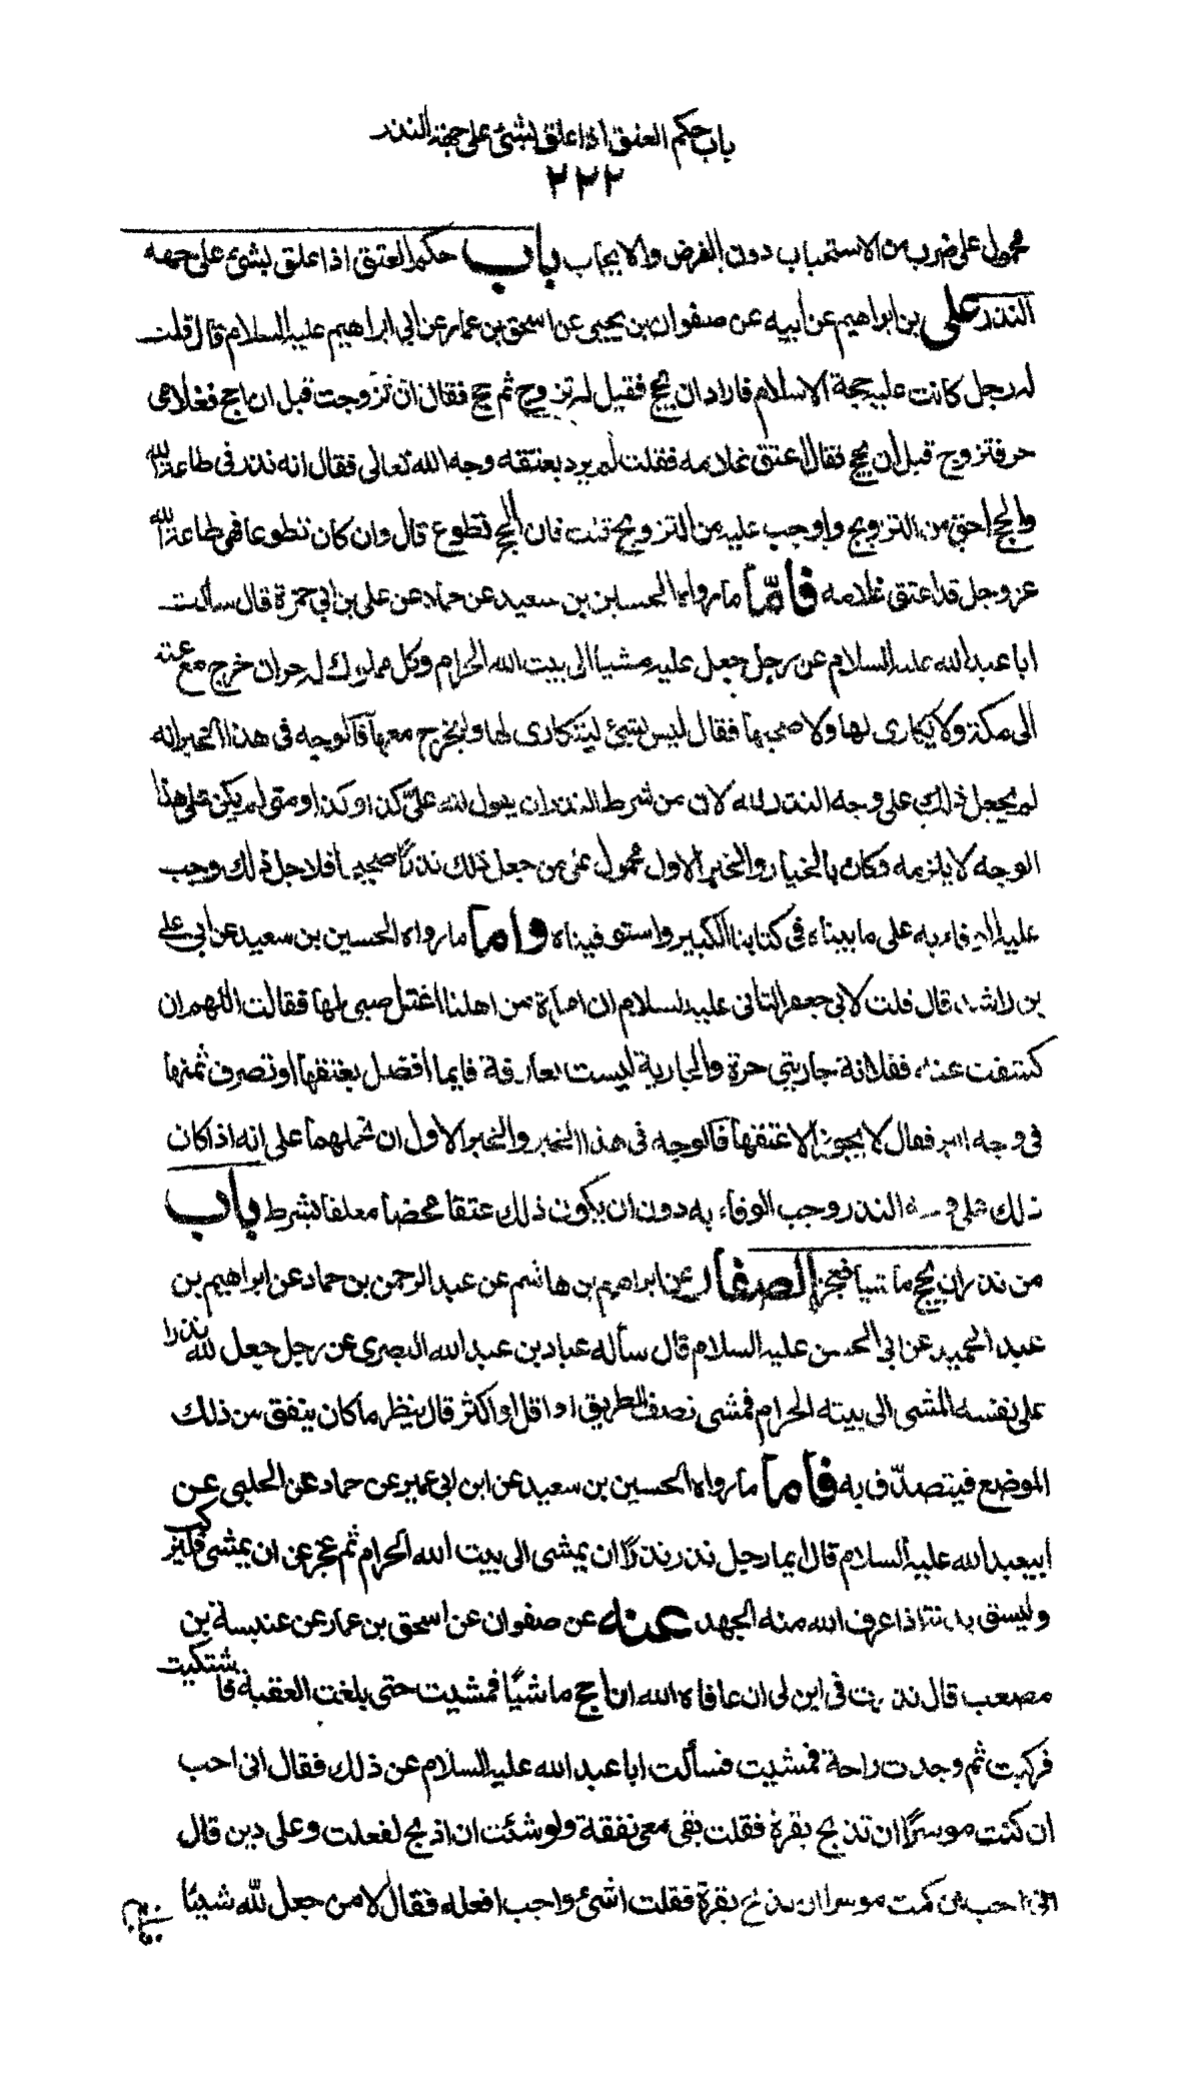 باب حكم العتق اذا علق بشئ على جهة النذر
٢٢٢
محمول على ضرب من الاستحباب دون الفرض والايجاب باب حكم العتق اذا علق بشئ على جهه
النذر على بن ابراهيم عن أبيه عن صفوان بن يحيى عن اسحق بن عمار عن ابي ابراهيم عليه السلام قال قلت
له رجل كانت عليه حجة الاسلام فاراد ان يحج فقيل له تزوج ثم حج فقال ان تزوجت قبل ان احج فغلامى
حر فتزوج قبل أن يحج فقال اعتق غلامه فقلت لم يرد بعتقه وجه الله تعالى فقال انه نذر فى طاعة الله
والحج احق من التزويج واوجب عليه من التزويج قلت فان الحج تطوع قال وان كان تطوعا فهى طاعة الله
عز وجل قد اعتق غلامه فأمّا ما رواه الحسين بن سعيد عن حماد عن على بن ابي حمزة قال سألت
ابا عبد الله عليه السلام عن رجل جعل عليه مشيا الى بيت الله الحرام وكل مملوك له حر ان خرج مع عمته
الى مكة ولا يكارى لها ولا صحبها فقال ليس بشئ ليتكارى لها وليخرج معها فالوجه فى هذا الخبر انه
لم يجعل ذلك على وجه النذر لله لان من شرط النذر ان يقول لله علىّ كذا وكذا ومتى لم يكن على هذا
الوجه لا يلزمه وكان بالخيار والخبر الاول محمول على من جعل ذلك نذرًا صحيحا فلاجل ذلك وجب
عليه الوفاء به على ما بيناه فى كتابنا الكبير واستوفيناه واما ما رواه الحسين بن سعيد عن ابى على
بن راشد قال قلت لابي جعفر الثانى عليه السلام ان امرأة من اهلنا اعتل صبى لها فقالت اللهم ان
كشفت عنه ففلانة جاريتي حرة والجارية ليست بعارفة فايما افضل يعتقها او تصرف ثمنها
فى وجه البر فقال لا يجوز الا عتقها فالوجه فى هذا الخبر والخبر الاول ان نحملهما على انه اذا كان
ذلك على وجه النذر وجب الوفاء به دون ان يكون ذلك عتقا محضا معلقا بشرط باب
من نذر ان يحج ماشيا فعجز الصفار عن ابراهيم بن هاشم عن عبد الرحمن بن حماد عن ابراهيم بن
عبد الحميد عن ابي الحسن عليه السلام قال سأله عباد بن عبد الله البصرى عن رجل جعل لله نذرا
على نفسه المشى الى بيته الحرام فمشى نصف الطريق او اقل او اكثر قال ينظر ما كان ينفق من ذلك
الموضع فيتصدّق به فأما ما رواه الحسين بن سعيد عن ابن ابى عمير عن حماد عن الحلبى عن
ابيعبد الله عليه السلام قال ايما رجل نذر نذرًا ان يمشى الى بيت الله الحرام ثم عجز عن ان يمشى فليركب
وليسق بدنة اذا عرف الله منه الجهد عنه عن صفوان عن اسحق بن عمار عن عنبسة بن
مصعب قال نذرت فى ابن لى ان عافاه الله ان احج ماشيًا فمشيت حتى بلغت العقبة فاشتكيت
فركبت ثم وجدت راحة فمشيت فسألت ابا عبد الله عليه السلام عن ذلك فقال انى احب
ان كنت موسرًا ان تذبح بقرة فقلت بقى معى نفقة ولو شئت ان اذبح لفعلت وعلى دين قال
انى احب ان كنت موسرا ان تذبح بقرة فقلت اشئ واجب افعله فقال لا من جعل لله شيئًا